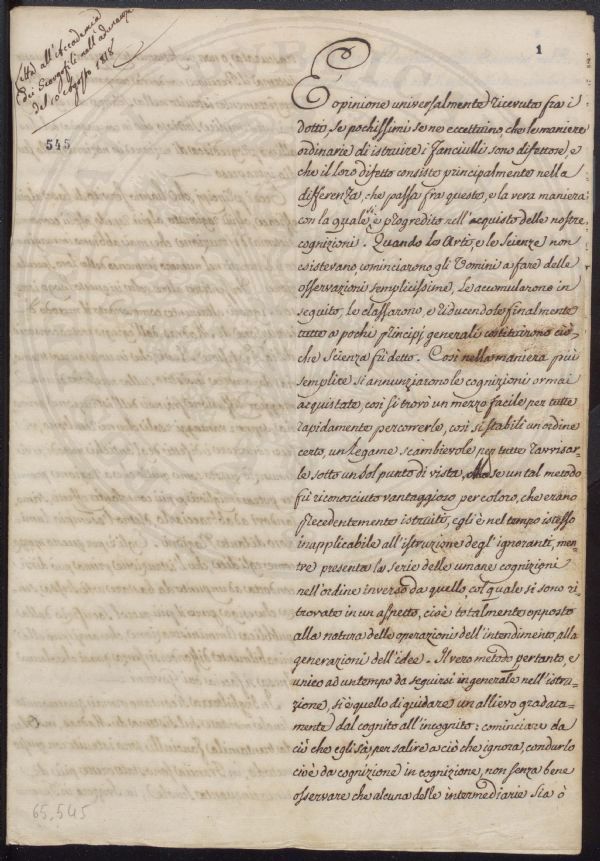 letta all'Accademia
dei Georgofili nell'adunanza
del 10 Agosto 1818
545
1
E opinione universalmente ricevuta fra i
dotti, se pochissimi se ne eccettuino, che le maniere
ordinarie di istruire i Fanciulli sono difettose, e
che il loro difetto consiste principalmente nella
differenza, che passa fra questo, e la vera maniera
con la quale si è progredito nell'acquisto delle nostre
cognizioni. Quando le Arti, e le Scienze non
esistevano cominciarono gli Uomini a fare delle
osservazioni semplicissime, le accumularono in
seguito, le classarono, e riducendole finalmente
tutte a pochi principj generali costituirono ciò
che Scienza fù detto. Così nella maniera più
semplice si annunziarono le cognizioni ormai
acquistate, così si trovò un mezzo facile per tutte
rapidamente percorrerle, così si stabilì un ordine
certo, un legame scambievole per tutte ravvisar-
le sotto un sol punto di vista, Ma se un tal metodo
fù riconosciuto vantaggioso per coloro, che erano
precedentemente istruiti, egli è nel tempo istesso
inapplicabile all'istruzione degl'ignoranti, men=
tre presenta la serie delle umane cognizioni
nell'ordine inverso da quello, col quale si sono ri=
trovate in un aspetto, cioè totalmente opposto
alla natura delle operazioni dell'intendimento, alla
generazioni dell'idee. Il vero metodo pertanto, e
unico ad un tempo da seguirsi in generale nell'istru=
zione, si è quello di guidare un allievo gradata=
mente dal cognito all'incognito: cominciare da
ciò che egli sà, per salire a ciò che ignora, condurlo
cioè da cognizione in cognizione, non senza bene
osservare che alcuna delle intermediarie sia ò
65,545